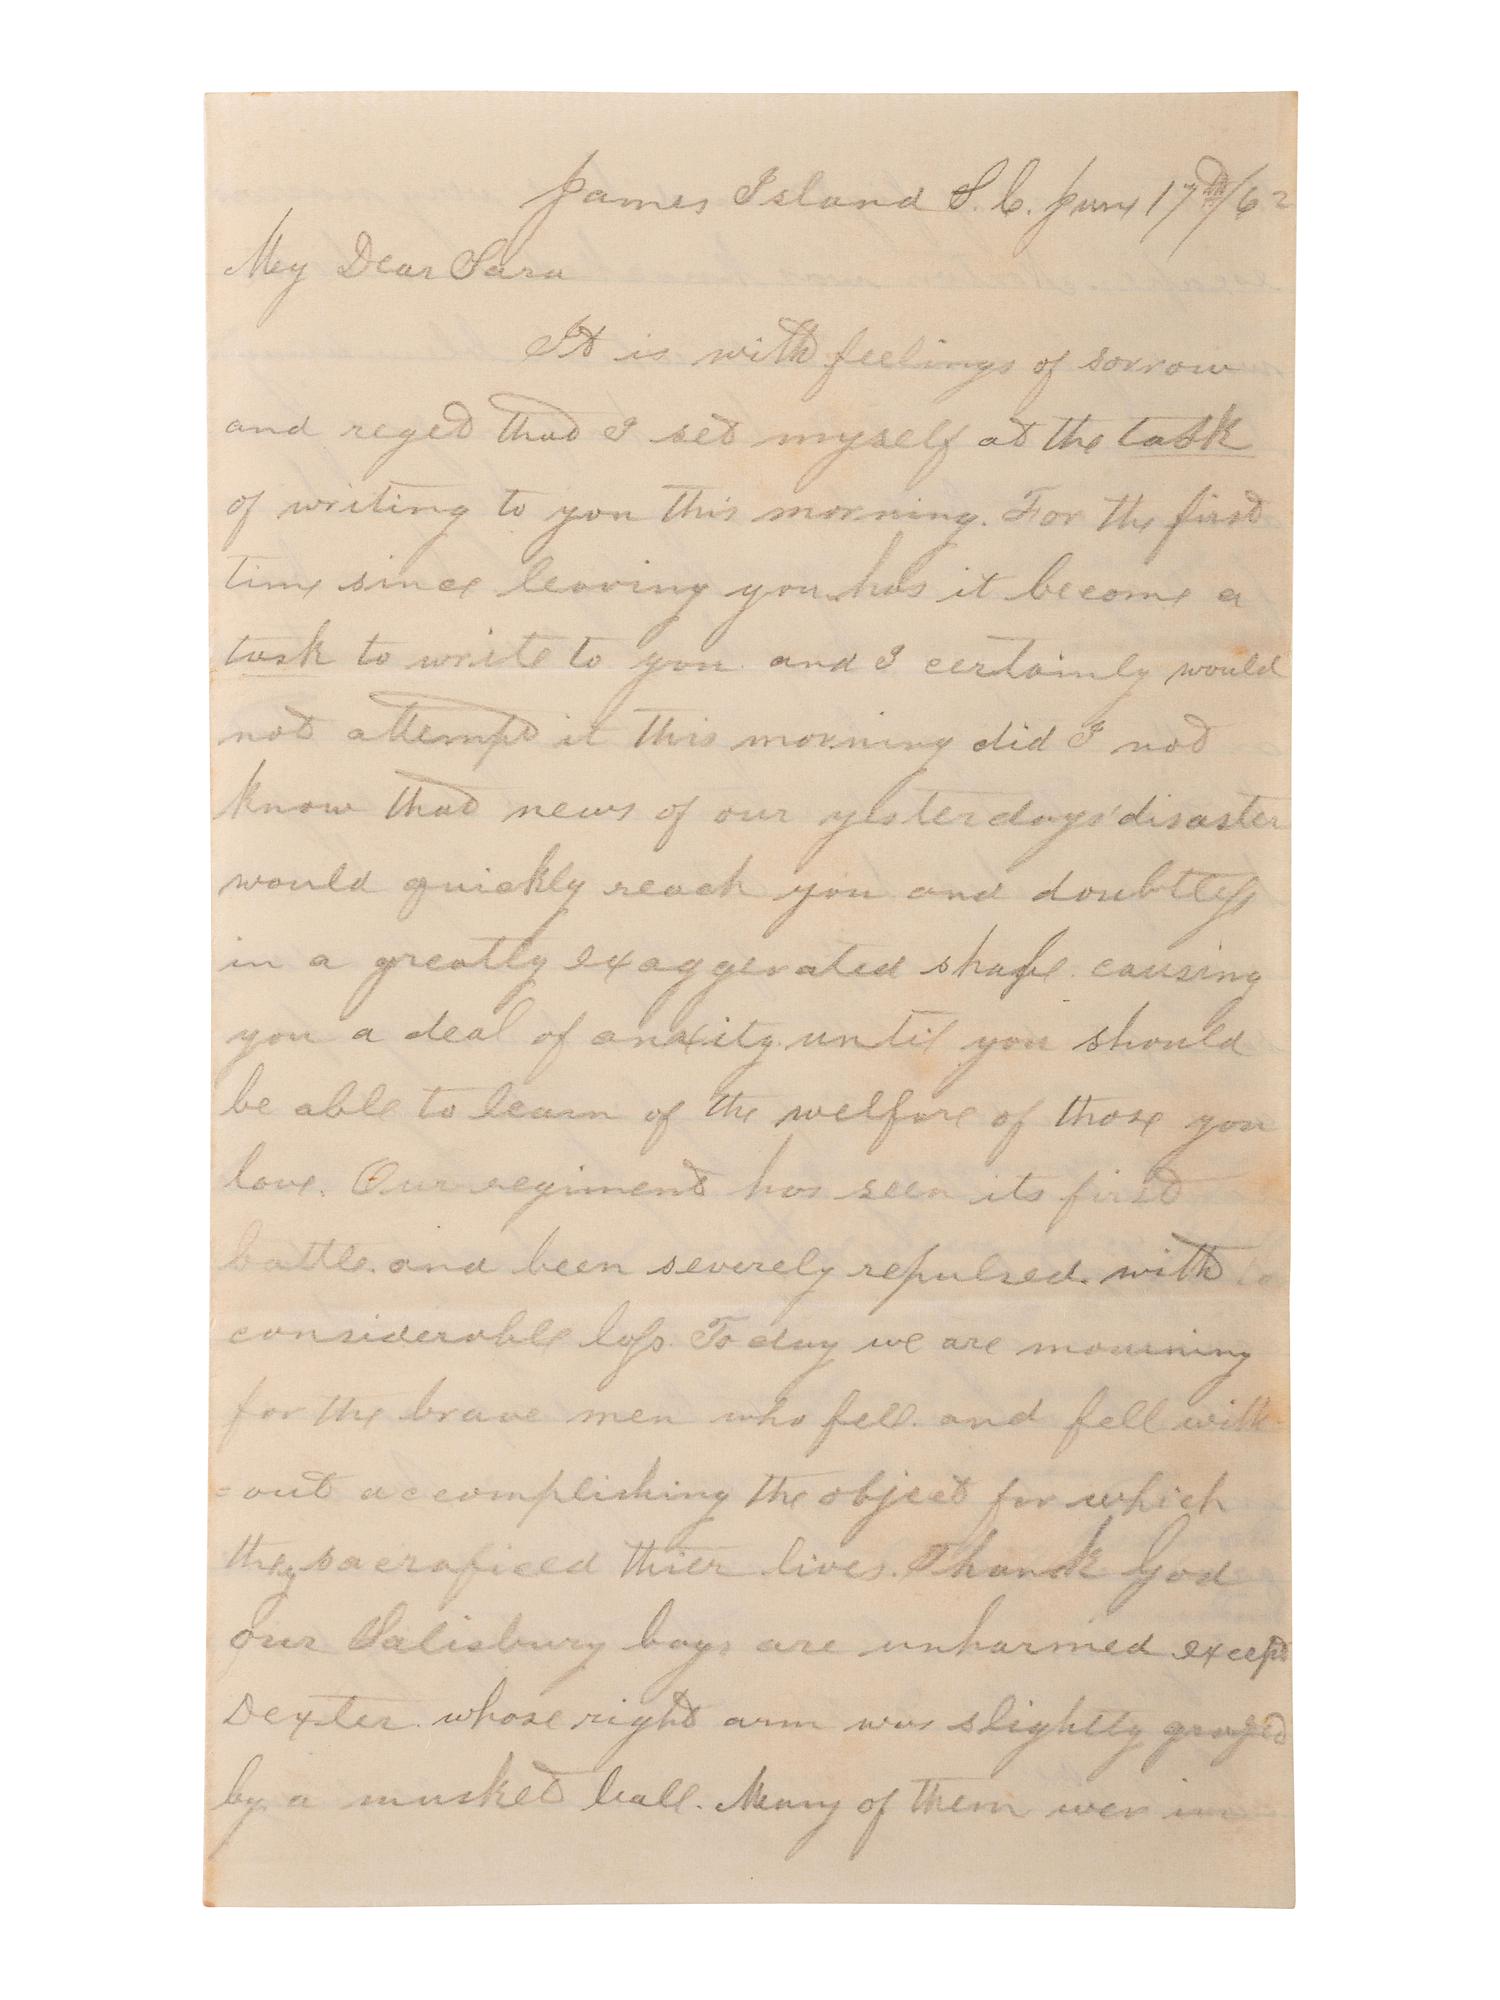 James Island S.C. June 17th/62
My Dear Sara
It is with feelings of sorrow
and reget that I set myself at the task
of writing to you this morning. For the first
time since leaving you has it become a
task to write to you and I certainly would
not attempt it this morning did I not
know that news of our yesterdays' disaster
would quickly reach you and doubtless
in a greatly exaggerated shape causing
you a deal of anxity until you should
be able to learn of the welfare of those you
love. Our regiment has seen its first
battle. and been severely repulsed. with
considerable loss. To day we are mourning
for the brave men who fell. and fell with
=out accomplishing the object for which
they sacraficed thier lives. Thank God
our Salisbury boys are unharmed except
Dexter. whose right arm was slightly grazed
by a musket ball. Many of them wer in